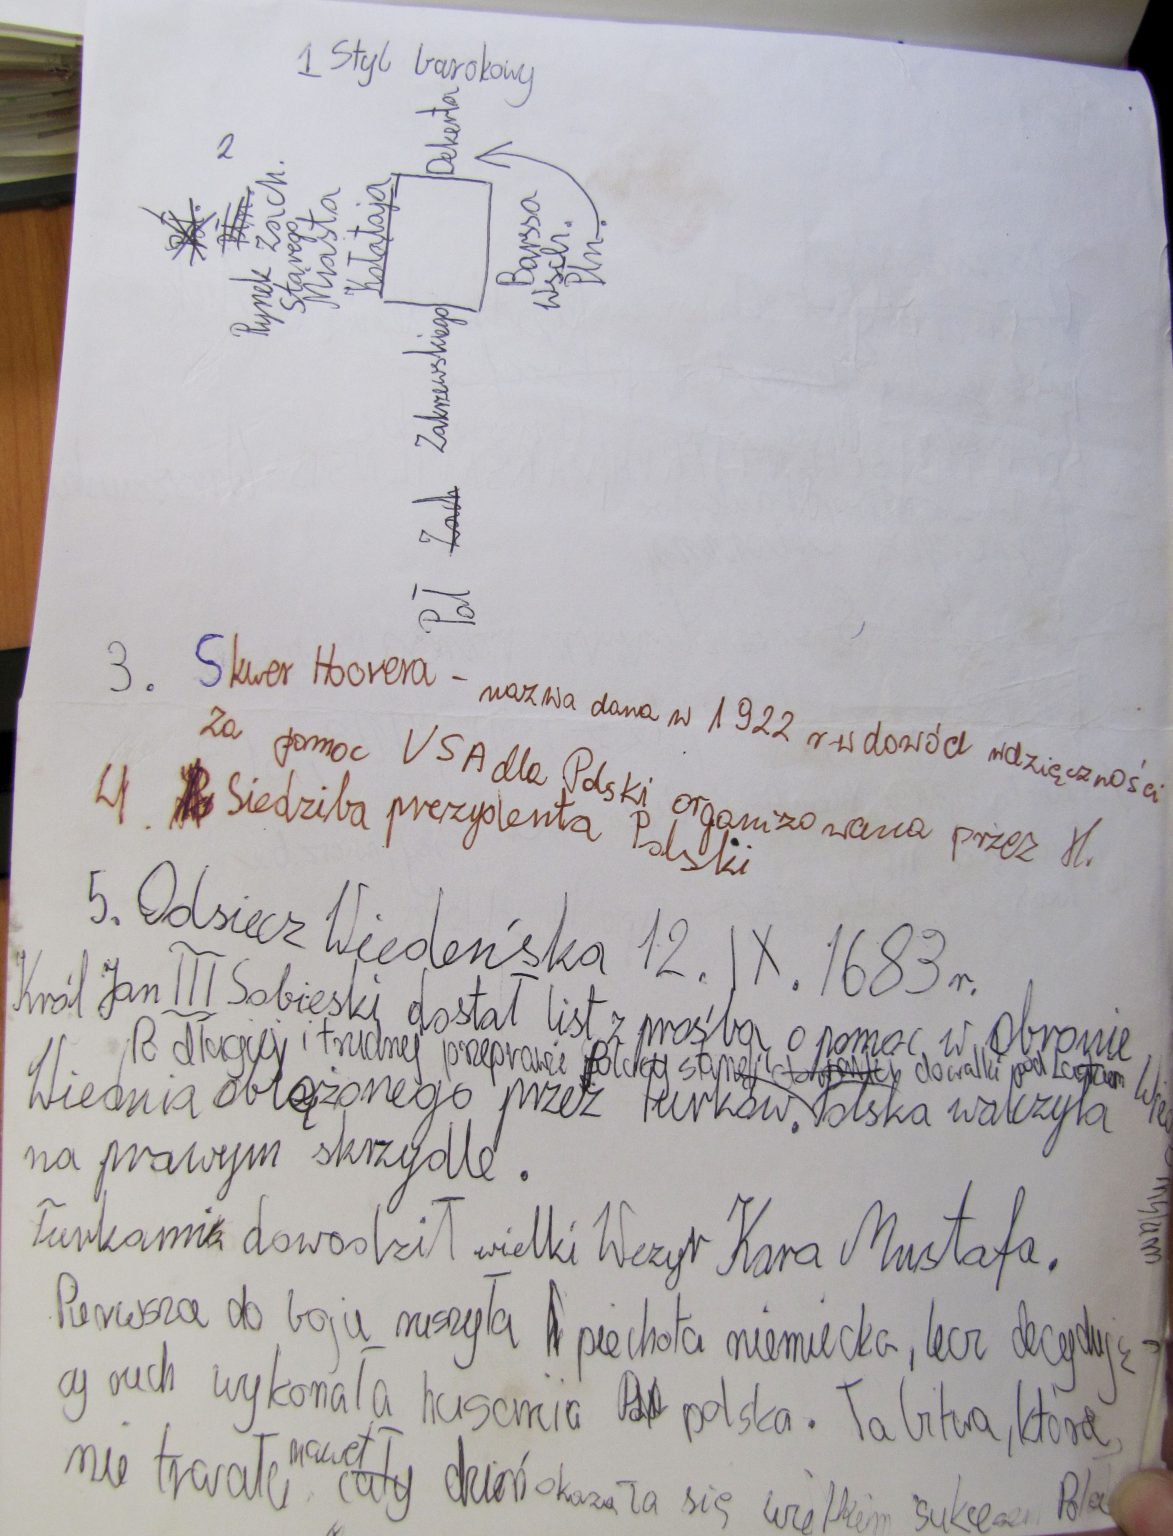 1 Styl barokowy
2
Rynek zach.
Starego
Miasta
Kołątaja
Dekerta
Barssa
Wsch.
Płn.
Zakrzewskiego
Zach
Poł
3. Skwer Hoovera - nazwa dana w 1922 r w dowód wdzięczności
za pomoc USA dla Polski organizowana przez H.
4. Siedziba prezydenta Polski
5. Odsiecz Wiedeńska 12. IX. 1683 r.
Król Jan III Sobieski dostał list z prośbą o pomoc w obronie
Po długiej i trudnej przeprawie Polacy stanęli do walki pod
Wiednia oblężonego przez Turków. Polska walczyła
na prawym skrzydle.
Turkami dowodził wielki Wezyr Kara Mustafa.
Pierwsza do boju ruszyła piechota niemiecka, lecz decydują
cy ruch wykonała husaria polska. Ta bitwa, która
nie trwała nawet cały dzień okazała się wielkim